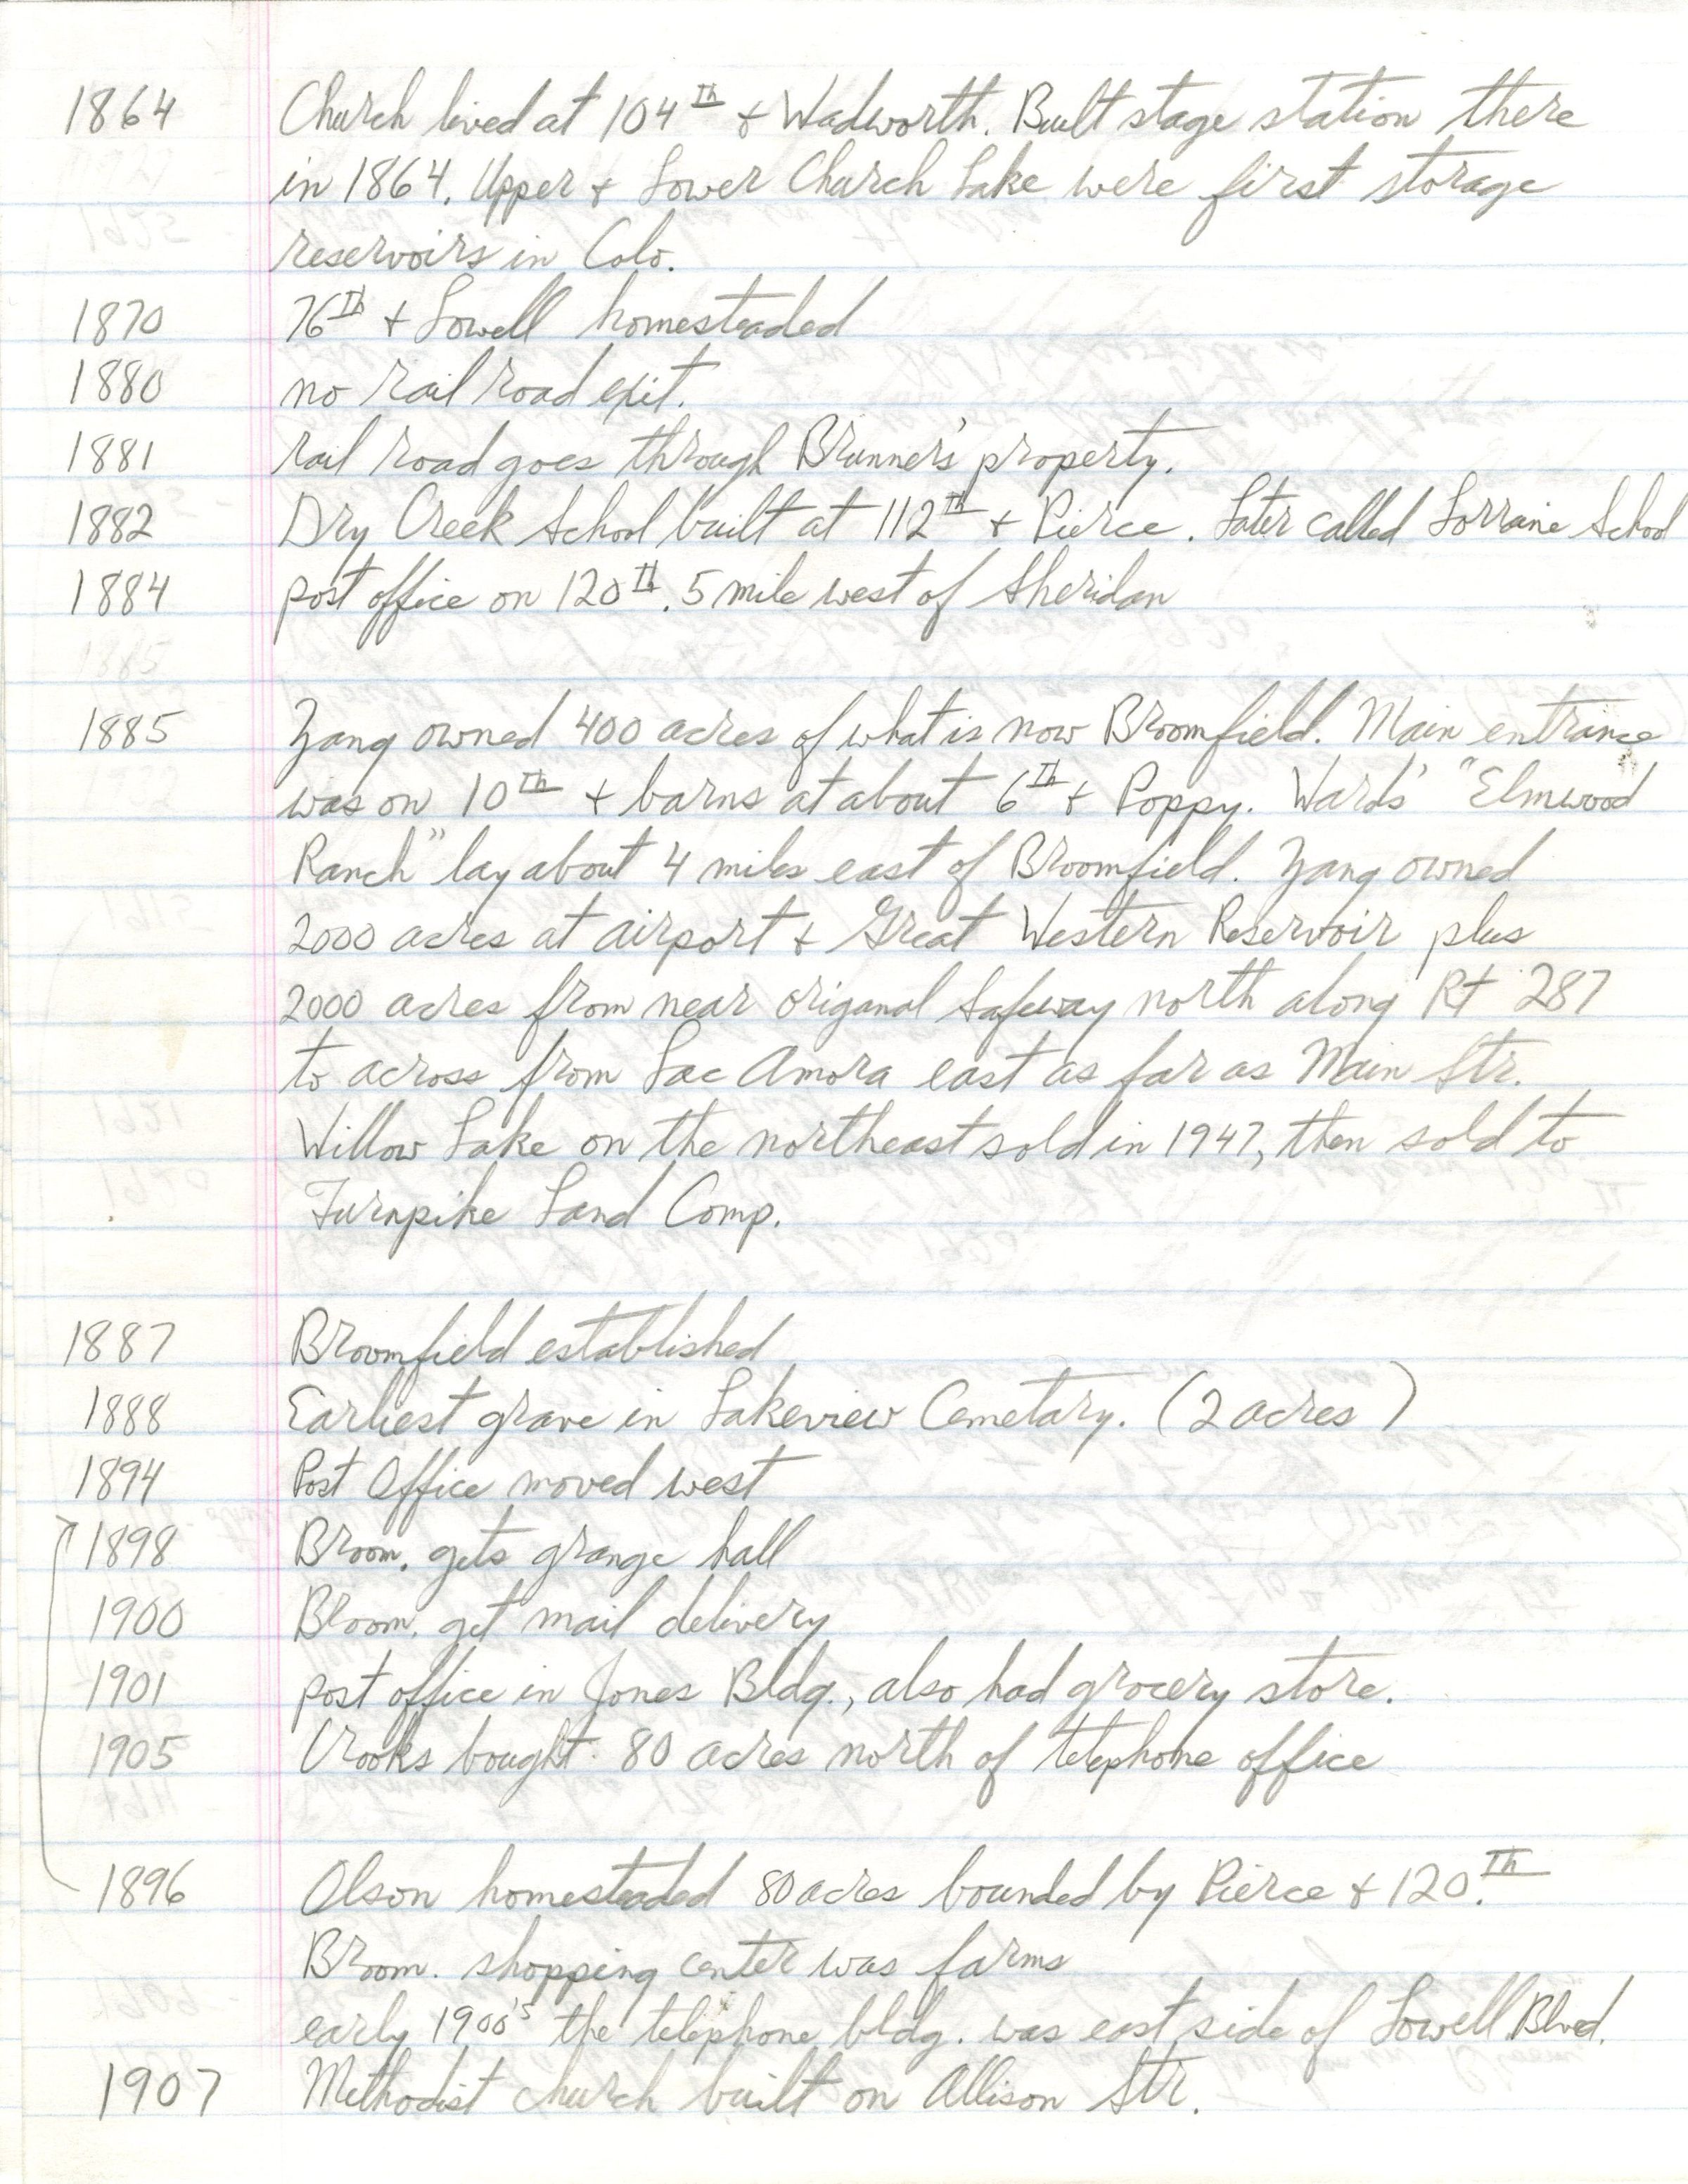 1864 Church lived at 104th + Wadworth. Built stage station there
in 1864. Upper + Lower Church Lake were first storage
reservoirs in Colo.
1870 76th + Lowell homesteaded
1880 no rail road exit.
1881 rail road goes through Brunner's property.
1882 Dry Creek School built at 112th + Pierce. Later called Lorraine School
1884 post office on 120th .5 mile west of Sheridan
1885 Zang owned 400 acres of what is now Broomfield. Main entrance
was on 10th + barns at about 6th + Poppy. Wards' "Elmwood
Ranch" lay about 4 miles east of Broomfield. Zang owned
2000 acres at airport + Great Western Reservoir plus
2000 acres from near origanal Safeway north along Rt 287
to across from Lac Amora east as far as Main Str.
Willow Lake on the northeast sold in 1947, then sold to
Turnpike Land Comp.
1887 Broomfield established
1888 Earliest grave in Lakeview Cemetary. (2 acres)
1894 Post Office moved west
1898 Broom. gets grange hall
1900 Broom. get mail delivery
1901 post office in Jones Bldg., also had grocery store.
1905 Crooks bought 80 acres north of telephone office
1896 Olson homesteaded 80 acres bounded by Pierce + 120.th
Broom. shopping center was farms
early 1900's the telephone bldg. was east side of Lowell Blvd.
1907 Methodist church built on Allison Str.